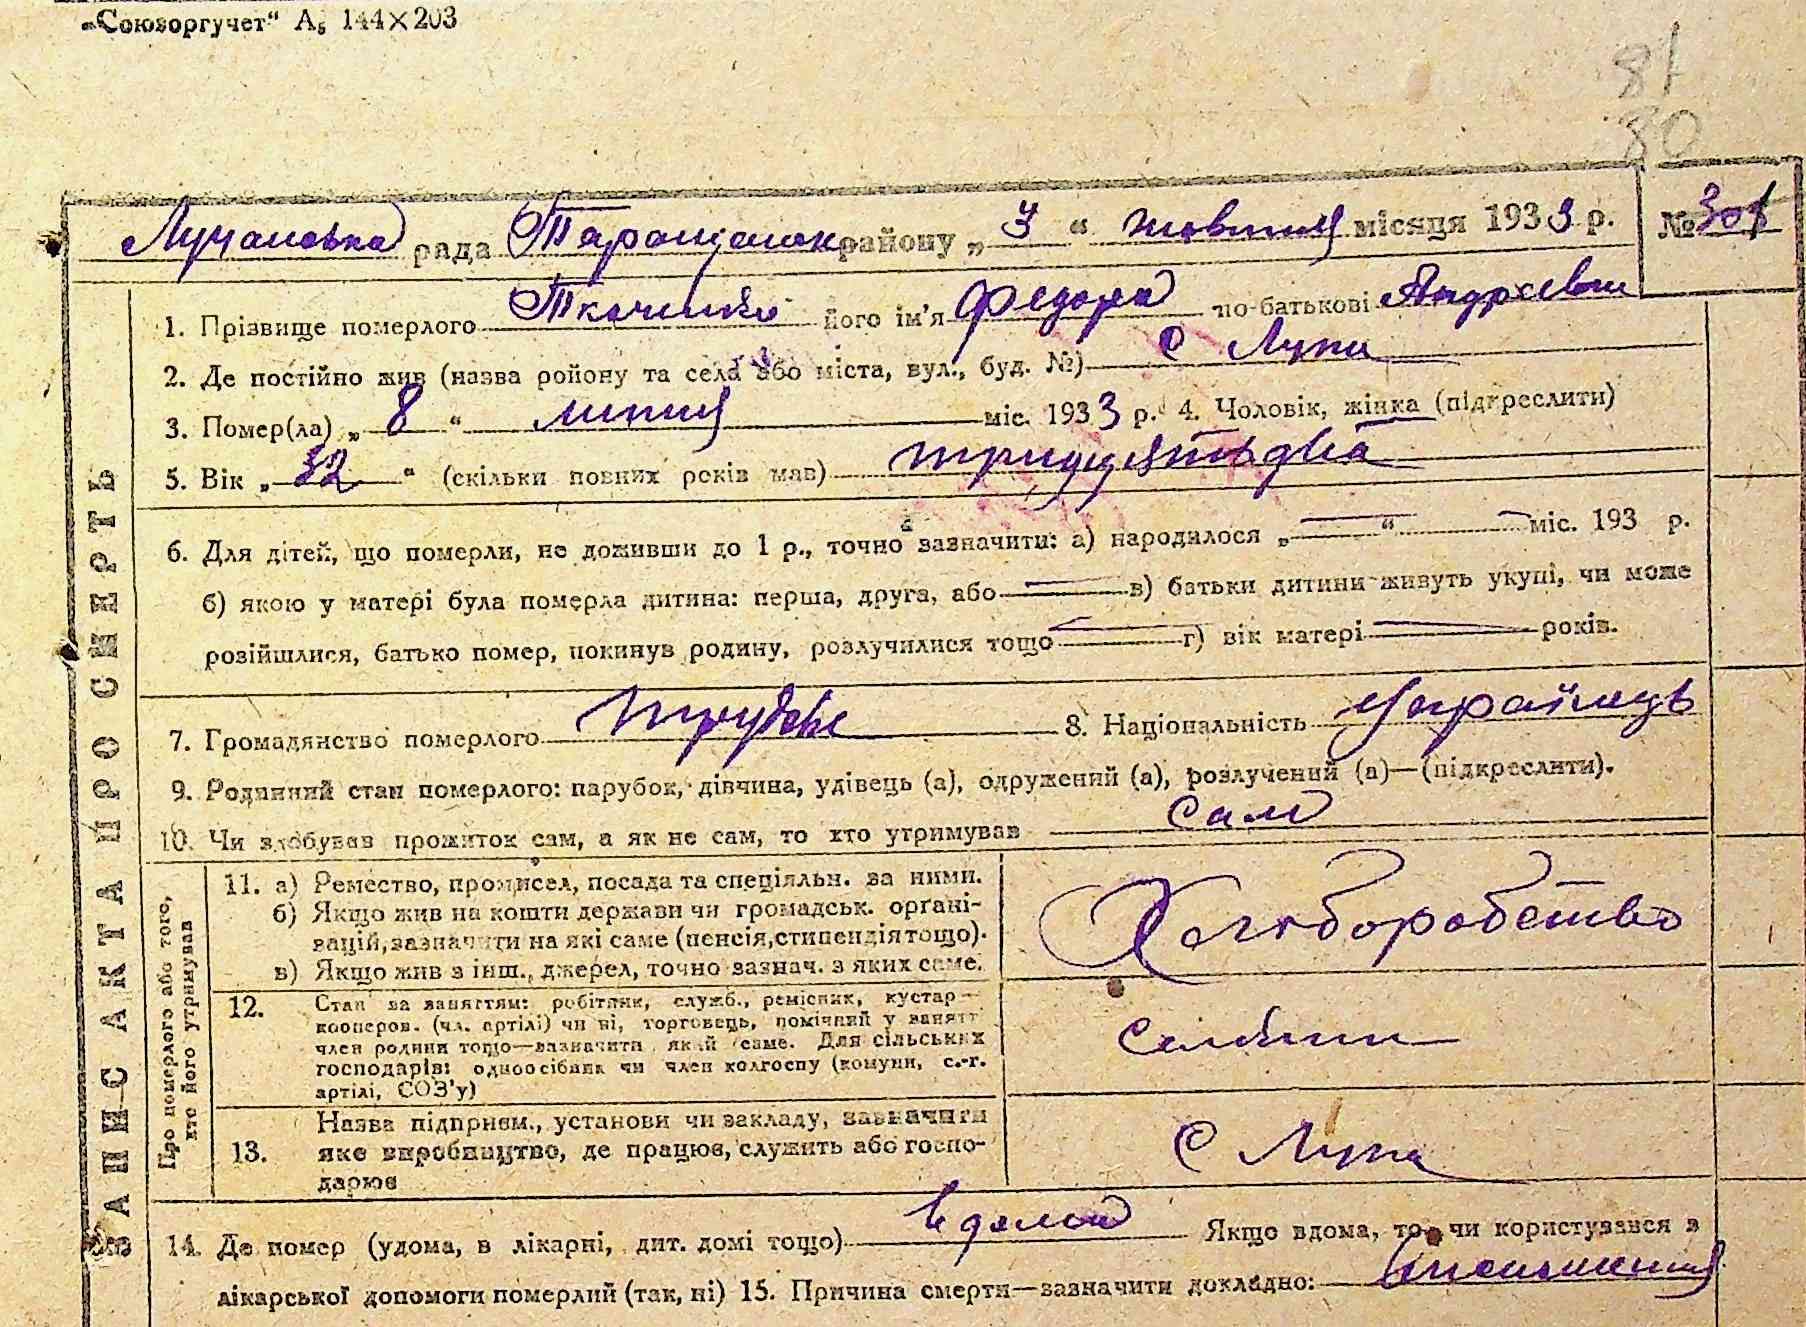 „Союзоргучет“ А₅ 144×203
81
80
Лучанська рада Таращанськ району „ 3 “ жовтня місяця 1933 р. № 301
1. Прізвище померлого Ткаченко його ім'я Федора по-батькові Андрєєвич
2. Де постійно жив (назва ройону та села або міста, вул., буд. №) С Лука
3. Помер(ла) „ 8 “ липня міс. 1933 р. 4. Чоловік, жінка (підкреслити)
5. Вік „ 32 “ (скільки повних років мав) тридцятьдва
6. Для дітей, що померли, не доживши до 1 р., точно зазначити: а) народилося „ — “ — міс. 193 р.
б) якою у матері була померла дитина: перша, друга, або — в) батьки дитини живуть укупі, чи може
розійшлися, батько помер, покинув родину, розлучилися тощо — г) вік матері — років.
7. Громадянство померлого 8. Національність Українець
9. Родинний стан померлого: парубок, дівчина, удівець (а), одружений (а), розлучений (а)—(підкреслити).
10. Чи здобував прожиток сам, а як не сам, то хто утримував сам
ЗАПИС АКТА ПРО СМЕРТЬ
Про померлого або того, хто його утримував
11. а) Ремество, промисел, посада та спеціяльн. за ними.
б) Якщо жив на кошти держави чи громадськ. орґані-
зацій, зазначити на які саме (пенсія, стипендія тощо).
в) Якщо жив з інш., джерел, точно зазнач. з яких саме.
Хліборобство
12. Стан за заняттям: робітник, служб., ремісник, кустар—
кооперов. (чл. артілі) чи ні, торговець, помічний у занятт
член родини тощо—зазначити який саме. Для сільських
господарів: одноосібник чи член колгоспу (комуни, с.-г.
артілі, СОЗ'у)
13. Назва підприєм., установи чи закладу, зазначити
яке виробництво, де працює, служить або госпо-
дарює
С Лука
14. Де помер (удома, в лікарні, дит. домі тощо) в дома Якщо вдома, то чи користувався з
лікарської допомоги померлий (так, ні) 15. Причина смерти—зазначити докладно: виснаження